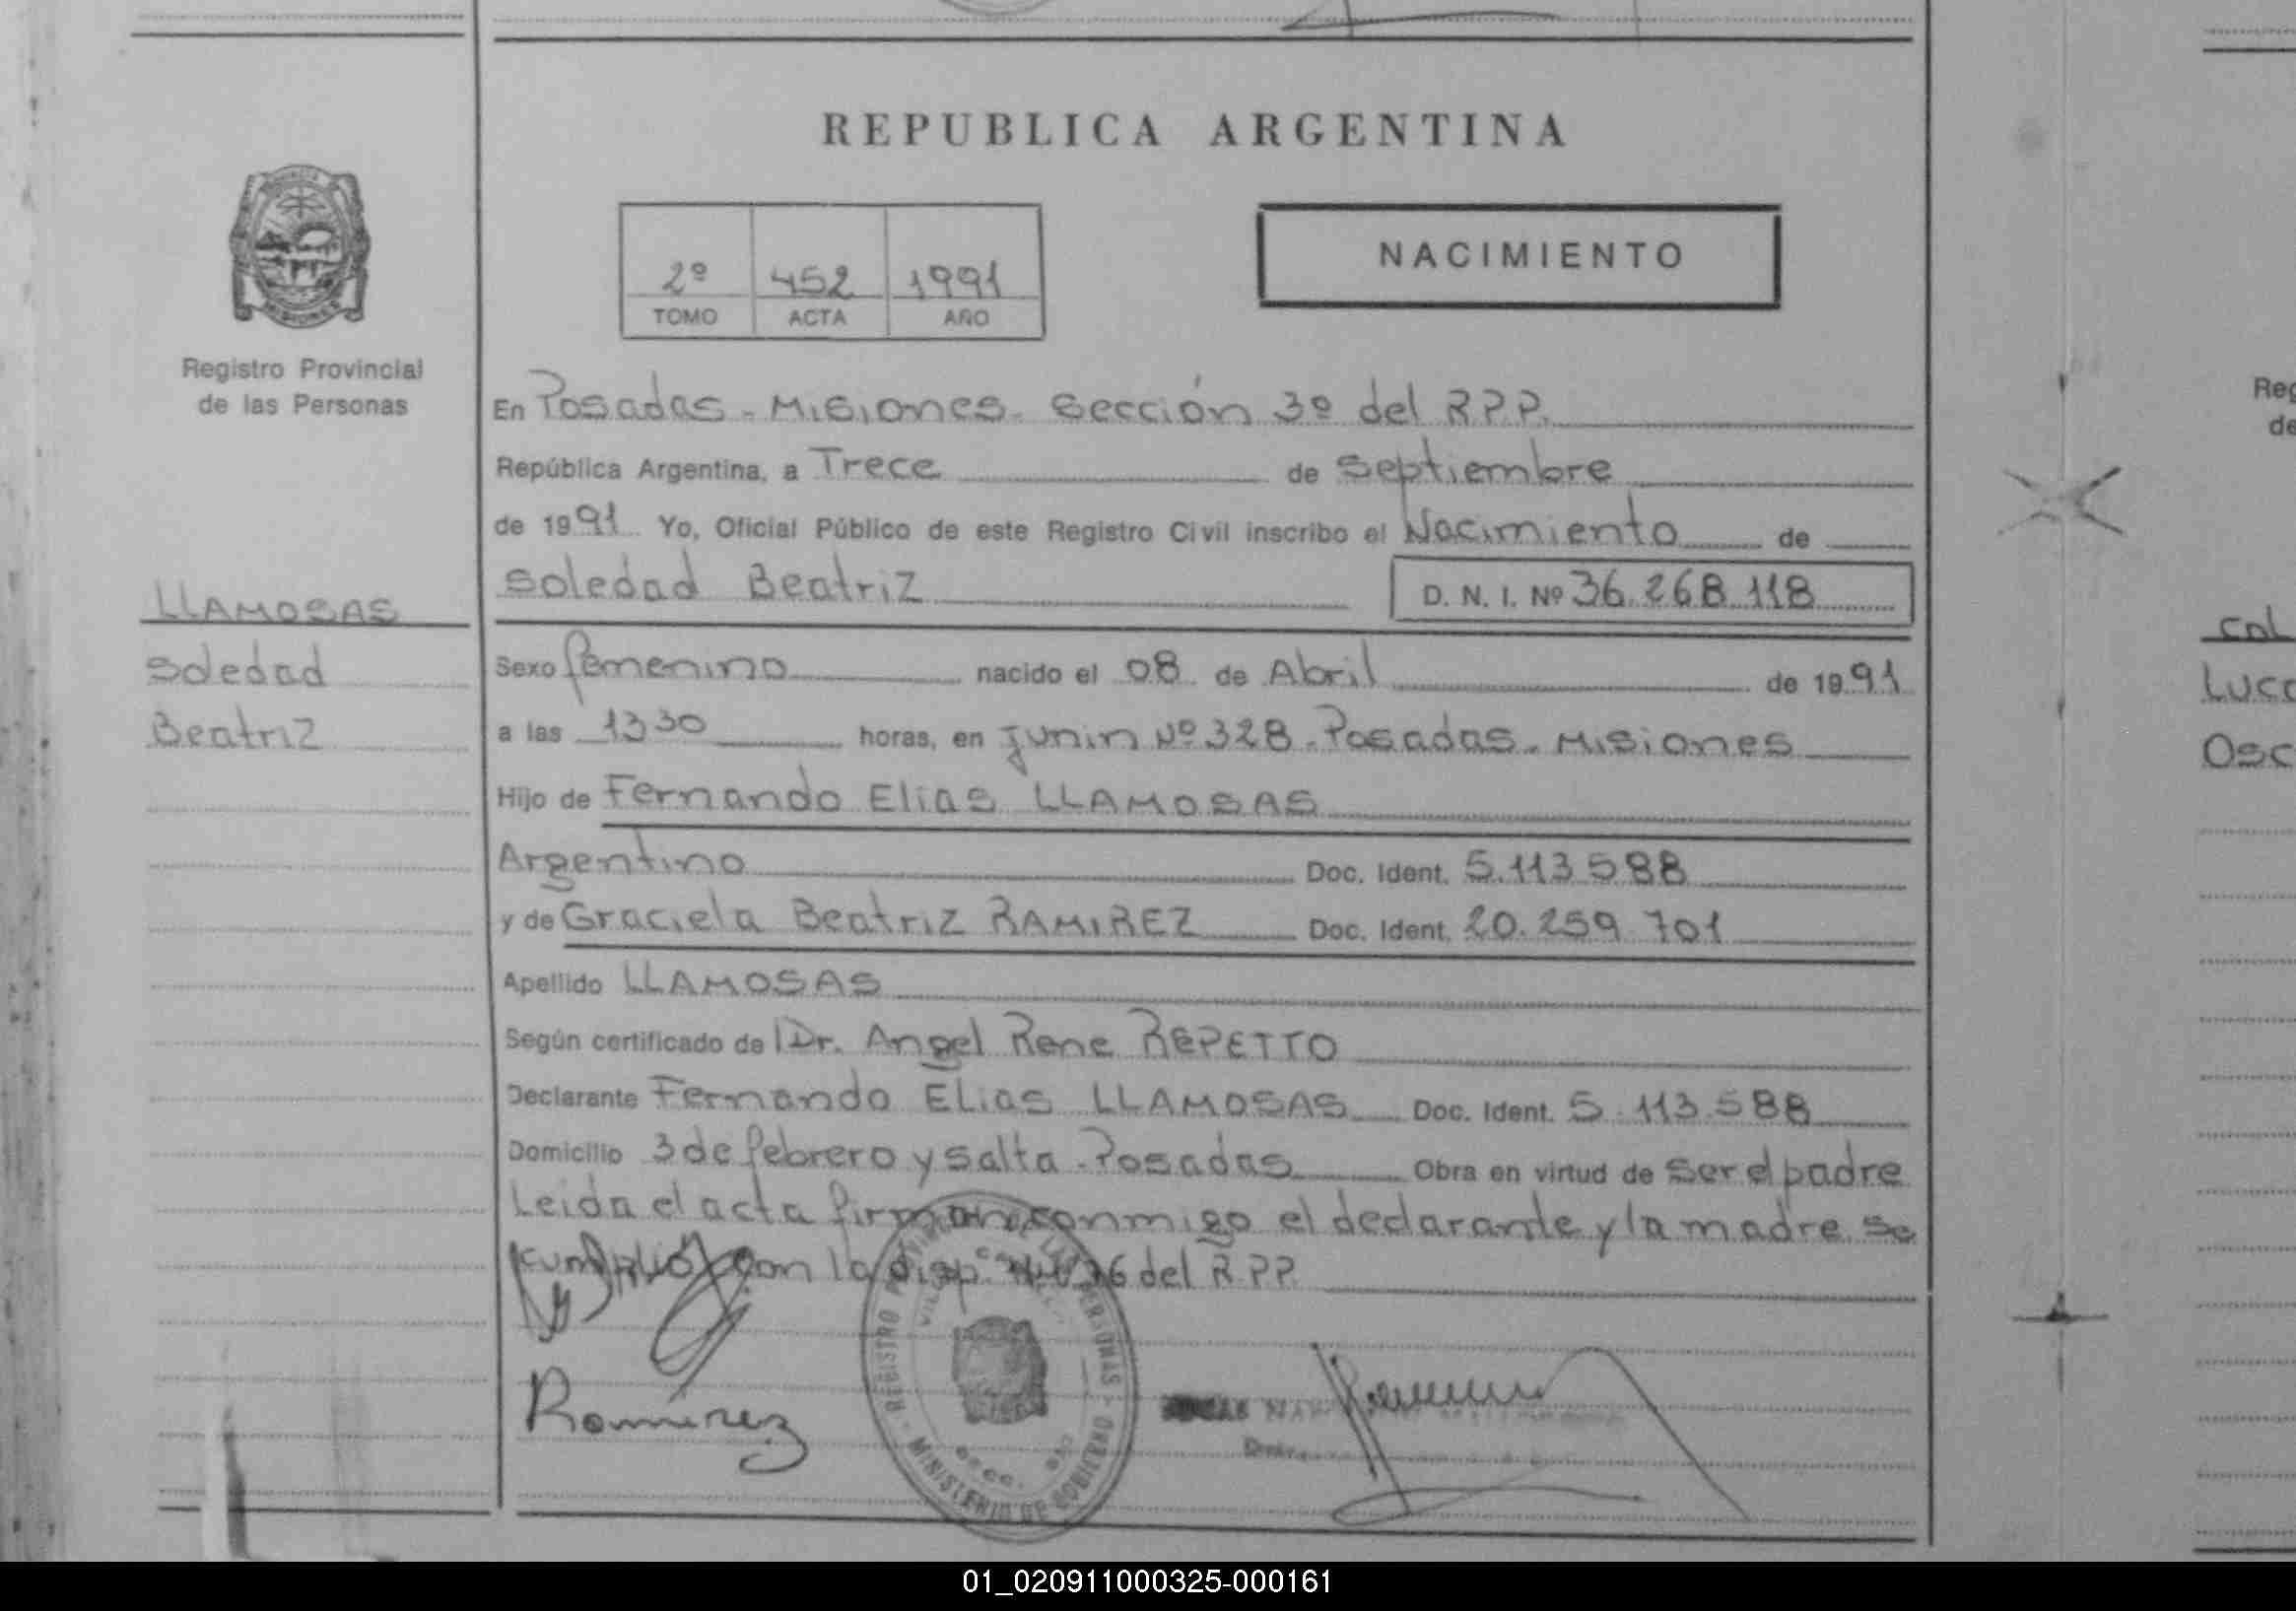 REPUBLICA ARGENTINA
2º 452 1991
TOMO ACTA AÑO
NACIMIENTO
MISIONES
Registro Provincial
de las Personas
LLAMOSAS
Soledad
Beatriz
En Posadas - Misiones. Sección 3º del R.P.P.
República Argentina, a Trece de Septiembre
de 1991 Yo, Oficial Público de este Registro Civil inscribo el Nacimiento de
Soledad Beatriz D. N. I. Nº 36.268.118
Sexo femenino nacido el 08 de Abril de 1991
a las 13 30 horas, en Junin Nº 328. Posadas. Misiones
Hijo de Fernando Elias LLAMOSAS
Argentino Doc. Ident. 5.113.588
y de Graciela Beatriz RAMIREZ Doc. Ident. 20.259.701
Apellido LLAMOSAS
Según certificado de Dr. Angel Rene REPETTO
Declarante Fernando Elias LLAMOSAS Doc. Ident. 5.113.588
Domicilio 3 de febrero y salta - Posadas Obra en virtud de ser el padre
Leida el acta firman conmigo el declarante y la madre. Se
cumplió con la disp. del R.P.P.
Ramirez
REGISTRO PROVINCIAL DE LAS PERSONAS
MINISTERIO DE GOBIERNO
Reg
de
Luc
Osc
01_020911000325-000161